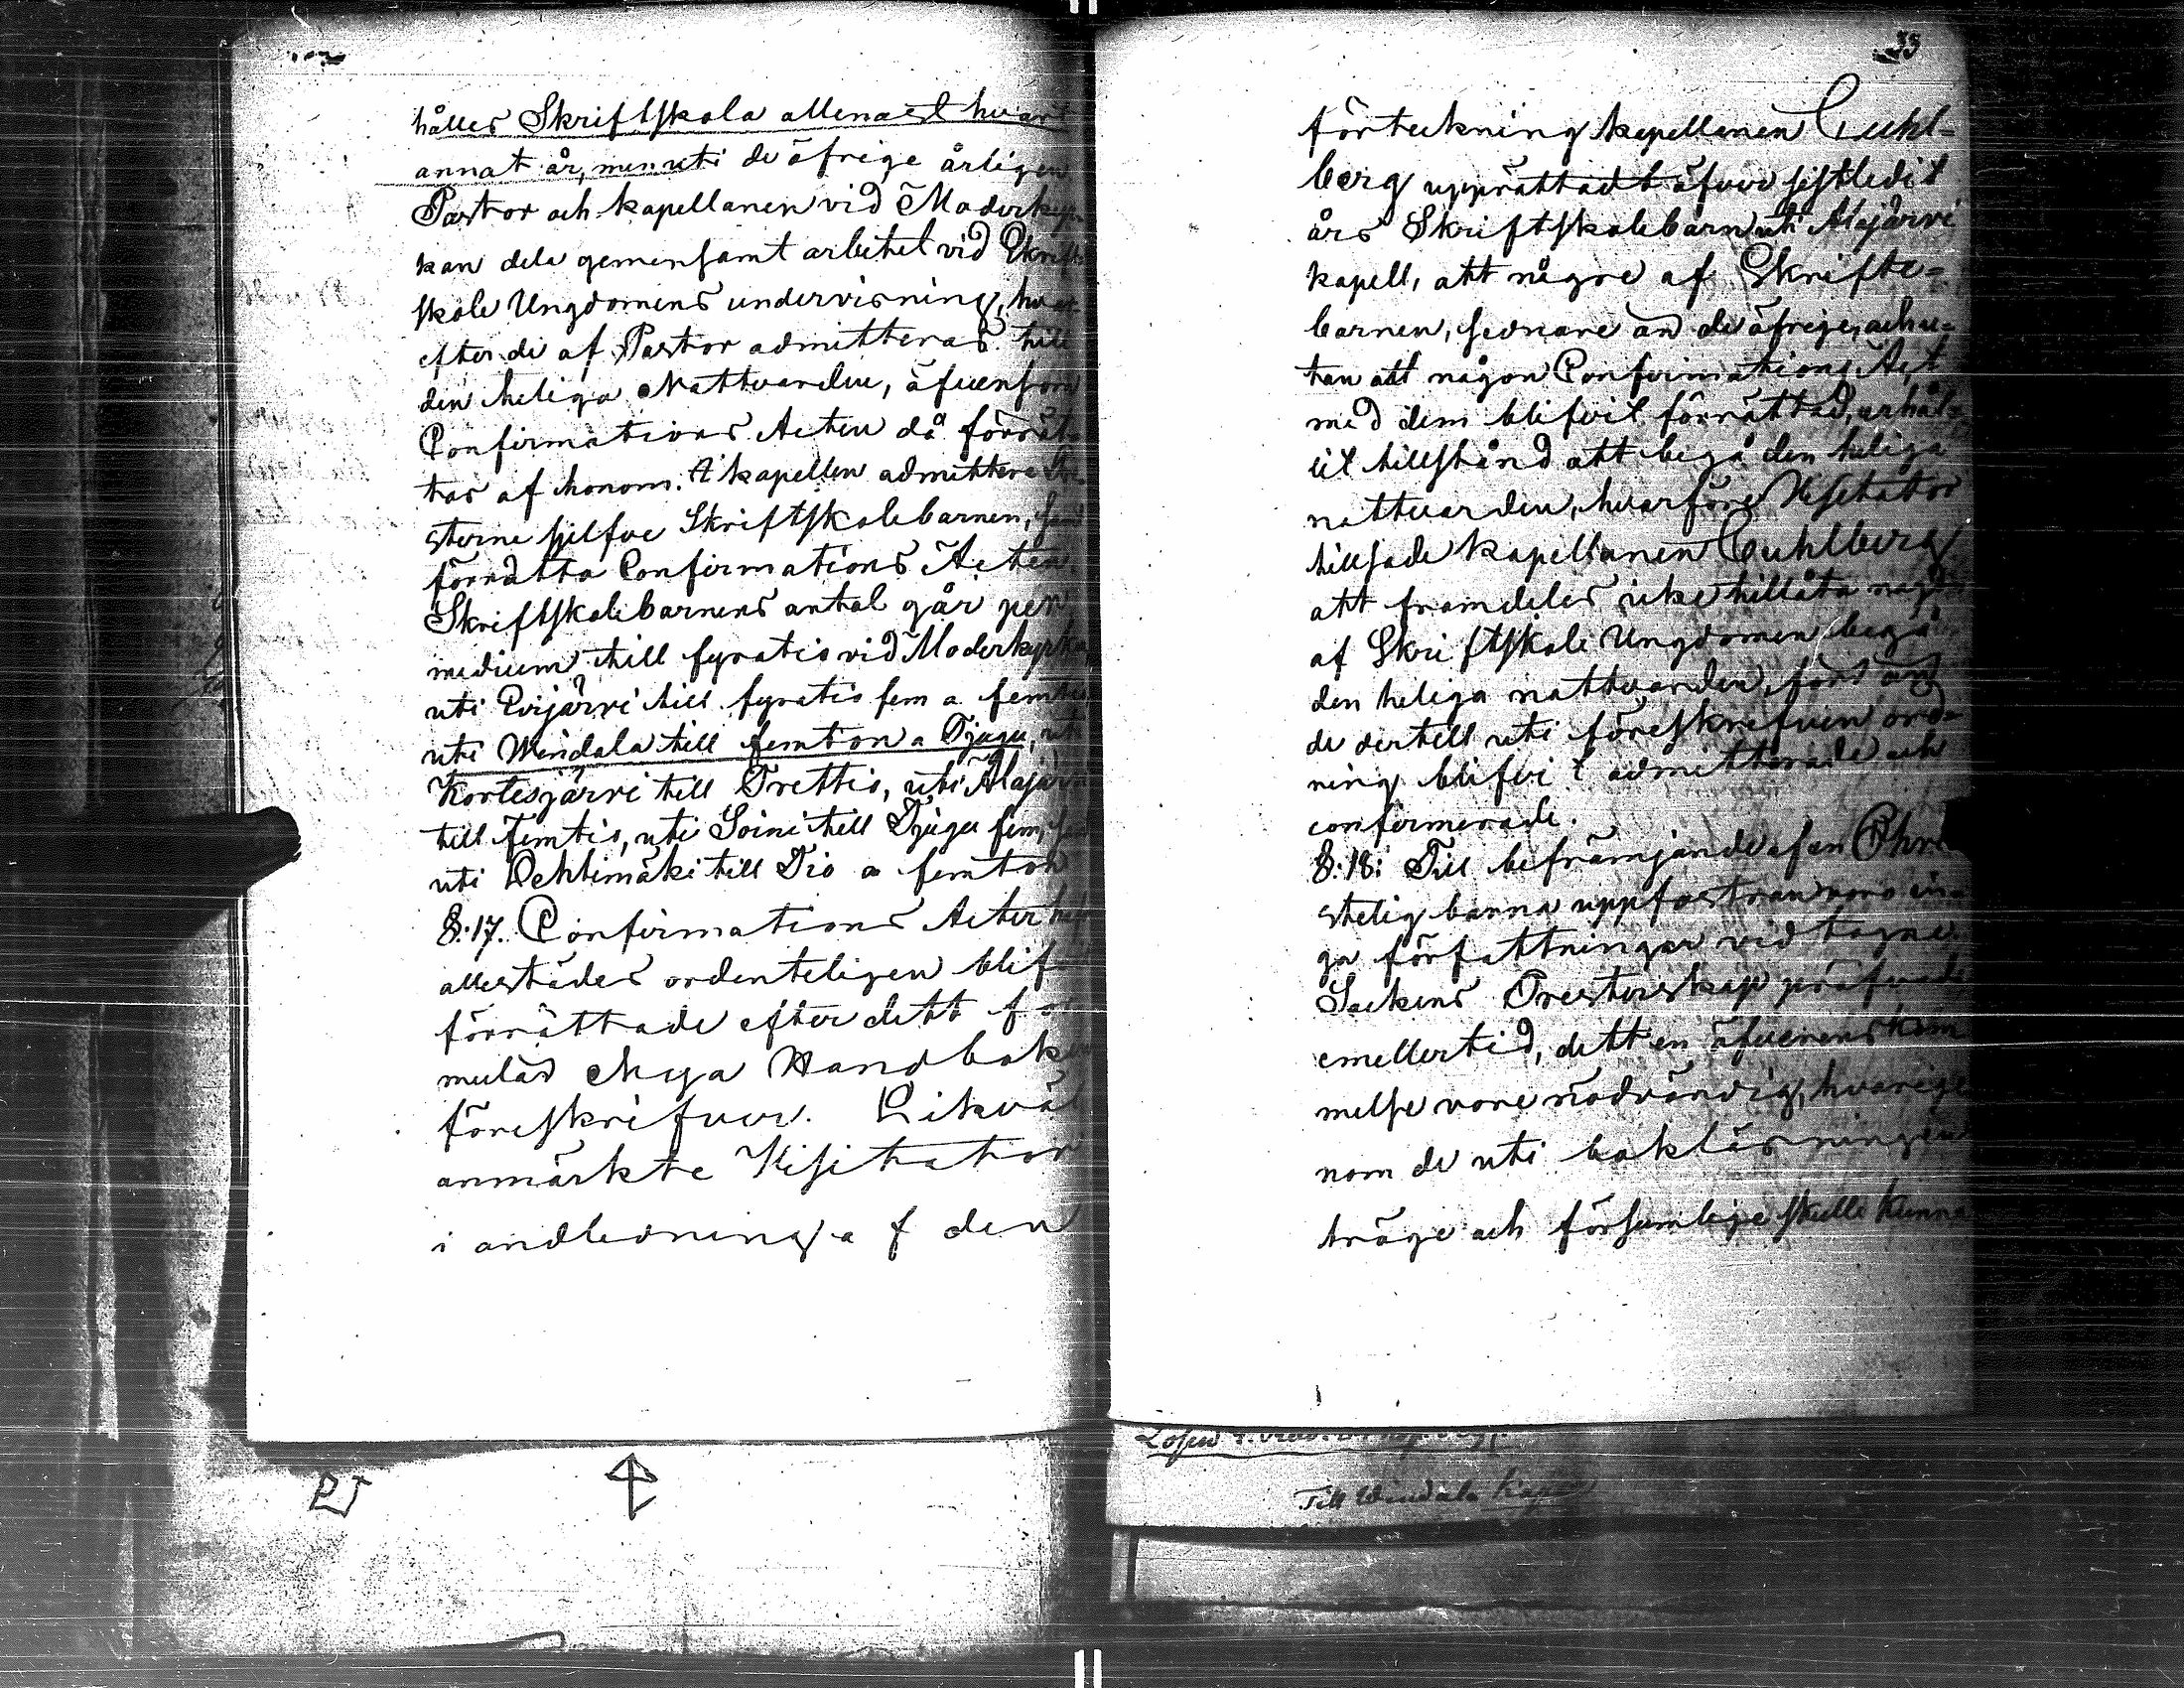 hålles Skriftskola allenast hvart
annat år, men uti de öfrige årligen
Pastor och kapellanen vid Moderkyr-
kan dela gemensamt arbetet vid Skrift-
skole Ungdomens undervisning, hvar-
efter de af Pastor admitteras till
den heliga Nattvarden, äfvensom
Confirmations Acten då förrät-
tas af honom. I kapellen admittera Pre-
sterne sjelfve Skriftskolebarnen, samt
förrätta Confirmations Acten.
Skriftskolebarnens antal går per
medium till fyratio vid Moderkyrkan,
uti Evijärvi till fyratio fem a femtio
uti Windala till femton a Tjugu, uti
Kortesjärvi till Trettio, uti Alajärvi
till femtio, uti Soini till Tjugu fem, samt
uti Lehtimäki till Tio a femton
§:17. Confirmations Acter
allestädes ordenteligen blif
förrättade efter dett for
mulär Nya Handboken
föreskrifver. Likväl
anmärkte Visitator
i andledning af den
35
förteckning kapellanen Cuhl-
berg upprättadt öfver sistledit
års Skriftskolebarn uti Alajärvi
kapell, att någre af Skrifte-
barnen, sednare än de öfrige, och u-
tan att någon Confirmations Act
med dem blifvit förrättad, erhål-
lit tillstånd att begå den heliga
nattvarden, hvarföre Visitator
tillsade kapellanen Cuhlberg
att framdeles icke tillåta någon
af Skriftskole Ungdomen begå
den heliga nattvarden, förr än
de dertill uti föreskrifven ord-
ning blifvit admitterade och
confirmerade.
§:18: Till befrämjande af en Chri
stelig barna uppfostran voro in-
ga författningar vidtagne.
Sockens Presterskap
emellertid, dett en öfverenskom
melse vore nödvändig, hvarige
nom de uti bokläsningen
tröge och försumlige skulle kunna
Till Windala